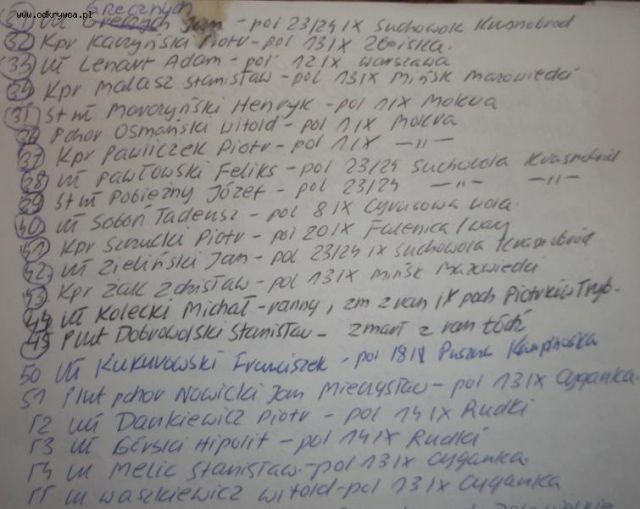 www.odkrywca.pl
Grecznych
uł Greczych Jan - pol 23/24 IX Suchowola Krasnobród
32 Kpr Karzyński Piotr - pol 13 IX Zboiska.
33 uł Lenart Adam - pol 12 IX Warszawa
34 Kpr Malasz Stanisław - pol 13 IX Mińsk Mazowiecki
35 St uł Marczyński Henryk - pol 1 IX Mokra
36 Pchor Osmański Witold - pol 1 IX Mokra
37 Kpr Pawliczek Piotr - pol 1 IX - " -
38 uł Pawłowski Feliks - pol 23/24 Suchowola Krasnobród
39 St uł Pobieżny Józef - pol 23/24 - " - - " -
40 uł Soboń Tadeusz - pol 8 IX Cyrusowa Wola.
41 Kpr Piotr - pol 20 IX Falenica
42 uł Zieliński Jan - pol 23/24 IX Suchowola Krasnobród
43 Kpr Żak Zdzisław - pol 13 IX Mińsk Mazowiecki
44 uł Kolecki Michał - ranny, zm z ran IX pod Piotrków Tryb.
45 Plut Dobrowolski Stanisław - zmarł z ran Łódź
50 uł Kukurowski Franciszek - pol 18 IX Puszcza Kampinoska
51 Plut pchor Nowicki Jan Mieczysław - pol 13 IX Cyganka.
52 uł Dankiewicz Piotr - pol 14 IX Rudki
53 uł Górski Hipolit - pol 14 IX Rudki
54 uł Melic Stanisław - pol 13 IX Cyganka.
55 uł Waszkiewicz Witold - pol 13 IX Cyganka